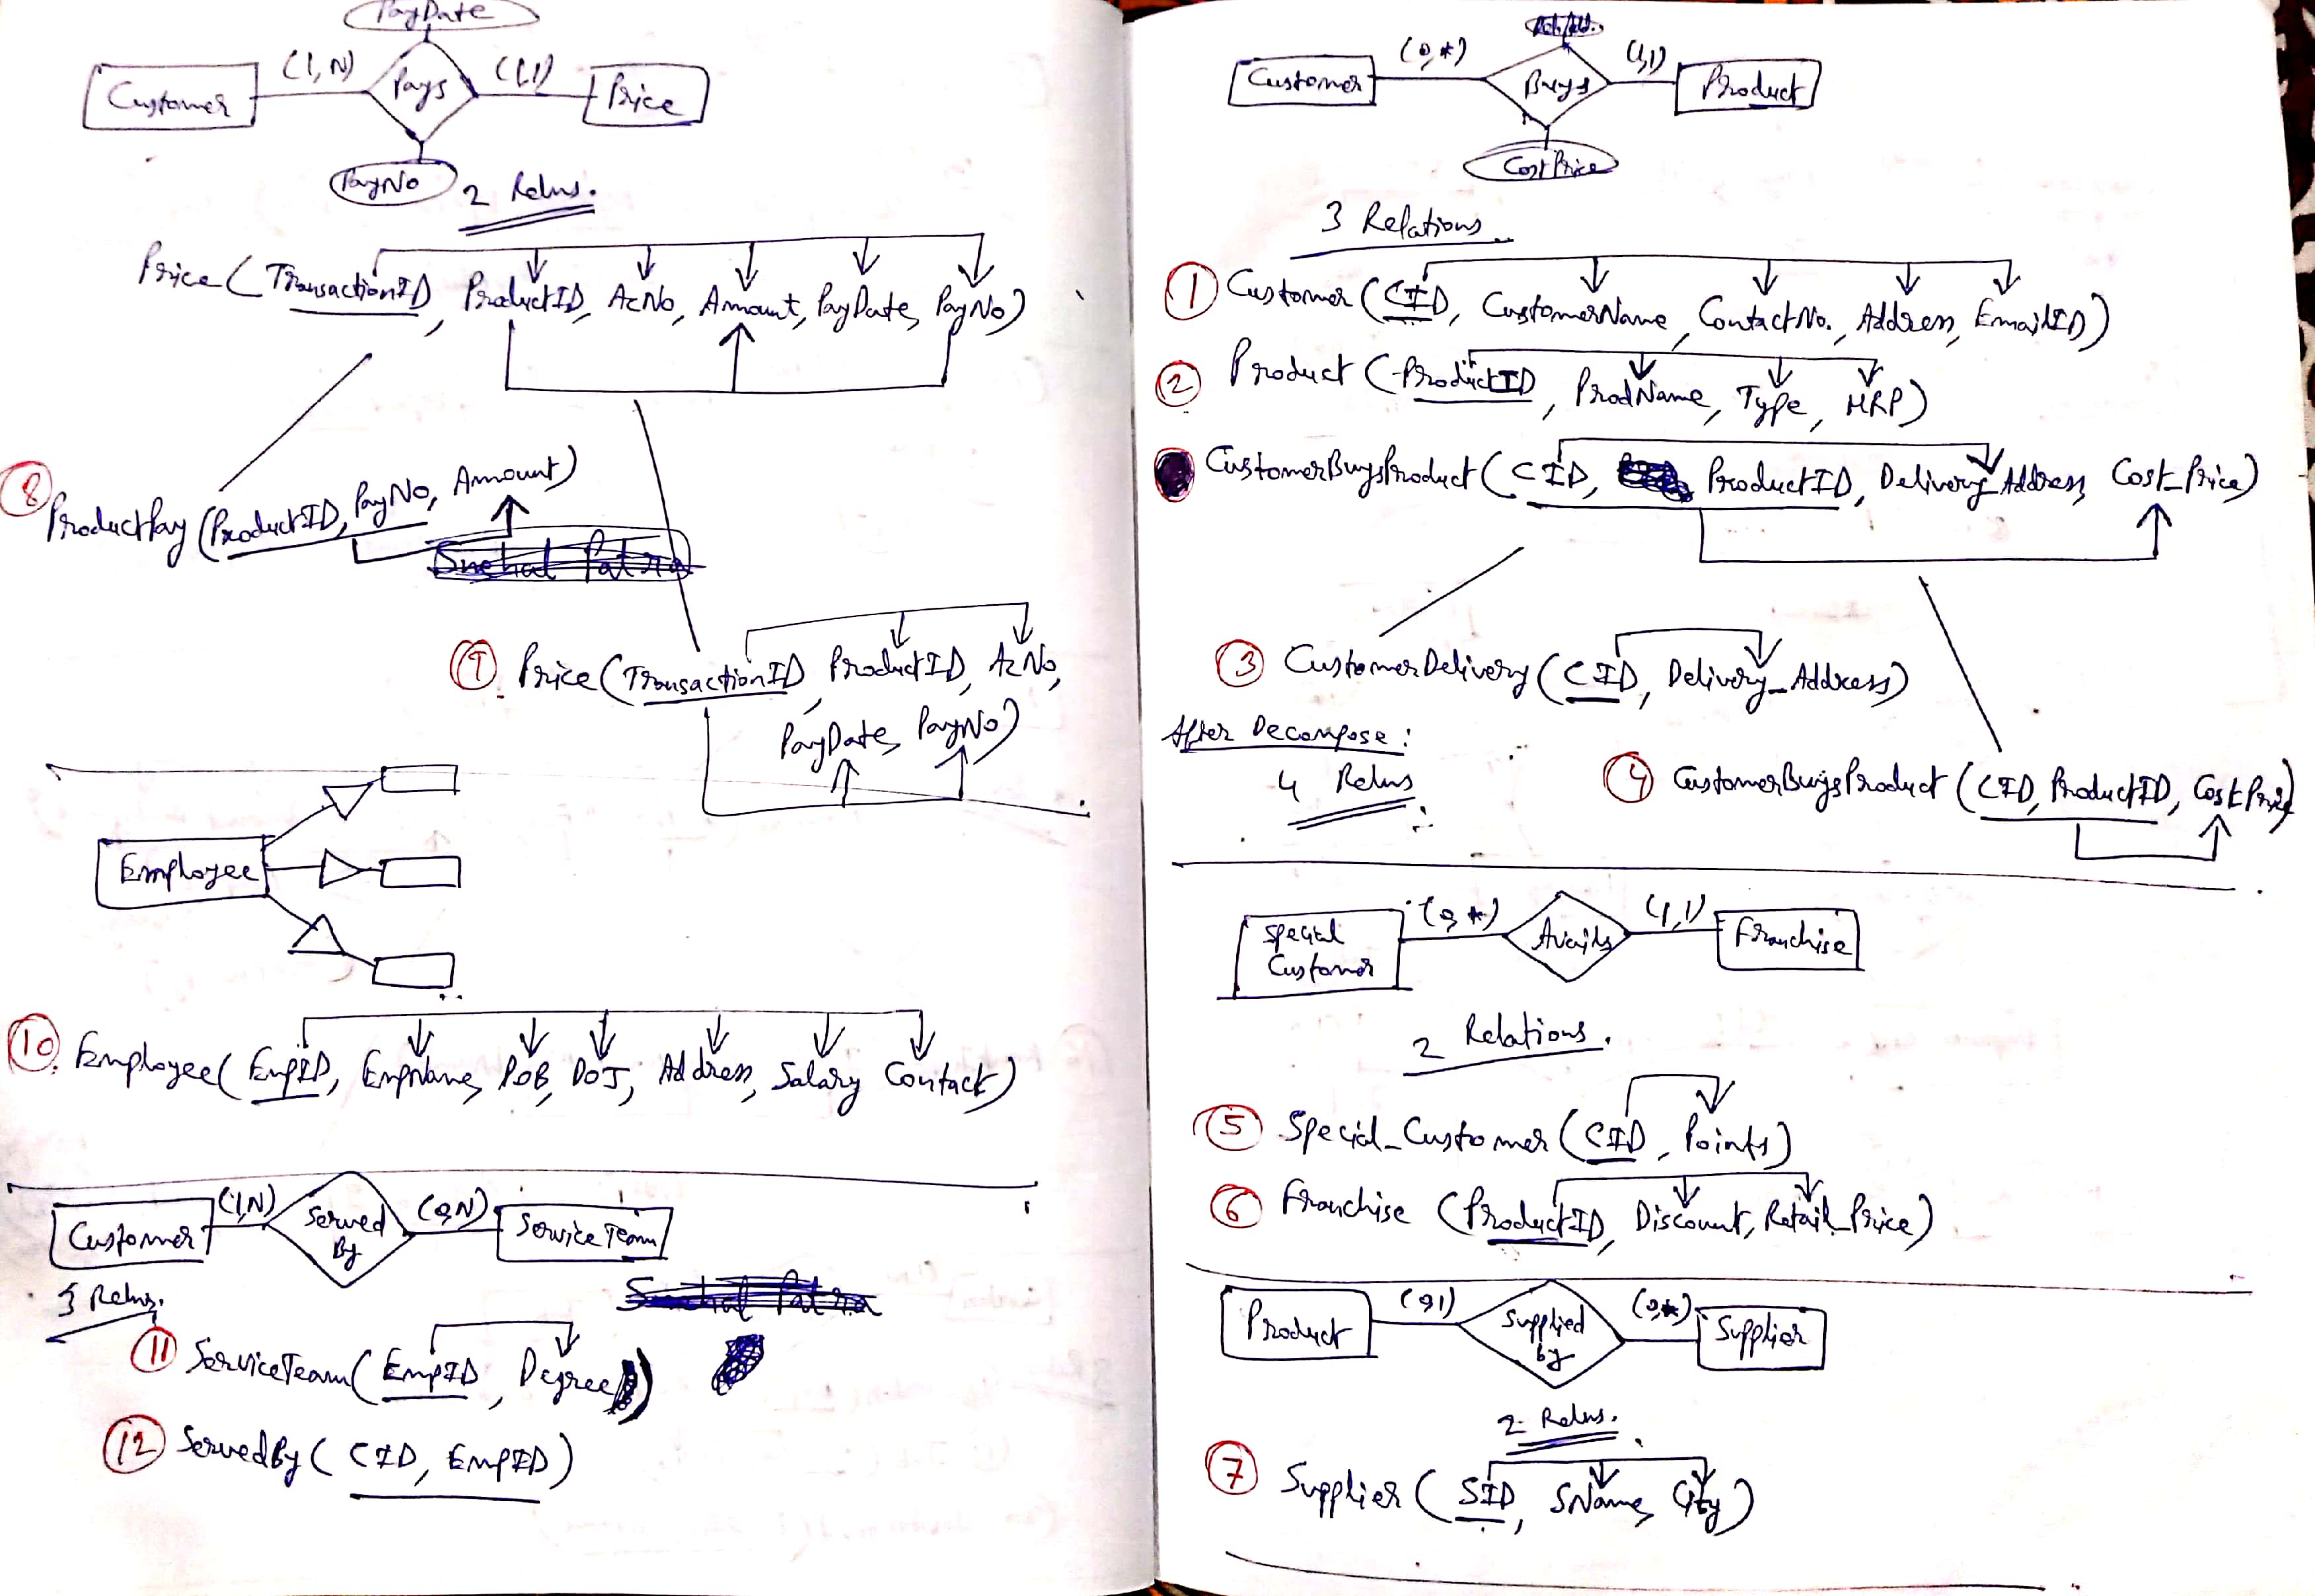 PayDate
Customer (1,N) Pays (1,1) Price
PayNo
2 Relns.
Price (TransactionID, ProductID, AcNo, Amount, PayDate, PayNo)
8 ProductPay (ProductID, PayNo, Amount)
9 Price (TransactionID, ProductID, AcNo,
PayDate, PayNo)
Employee
10 Employee (EmpID, EmpName, DOB, DOJ, Address, Salary Contact)
Customer (1,N) Served By (0,N) Service Team
3 Relns.
11 ServiceTeam (EmpID, Degree)
12 ServedBy (CID, EmpID)
Customer (0,*) Buys (1,1) Product
CostPrice
3 Relations
1 Customer (CID, CustomerName, ContactNo., Address, EmailID)
2 Product (ProductID, ProdName, Type, MRP)
CustomerBuysProduct (CID, ProductID, Delivery_Address, Cost_Price)
3 CustomerDelivery (CID, Delivery_Address)
After Decompose:
4 Relns
4 CustomerBuysProduct (CID, ProductID, CostPrice)
Special Customer (0,*) Avails (1,1) Franchise
2 Relations.
5 Special_Customer (CID, Points)
6 Franchise (ProductID, Discount, Retail_Price)
Product (0,1) Supplied by (0,*) Supplier
2 Relns.
7 Supplier (SID, SName, City)